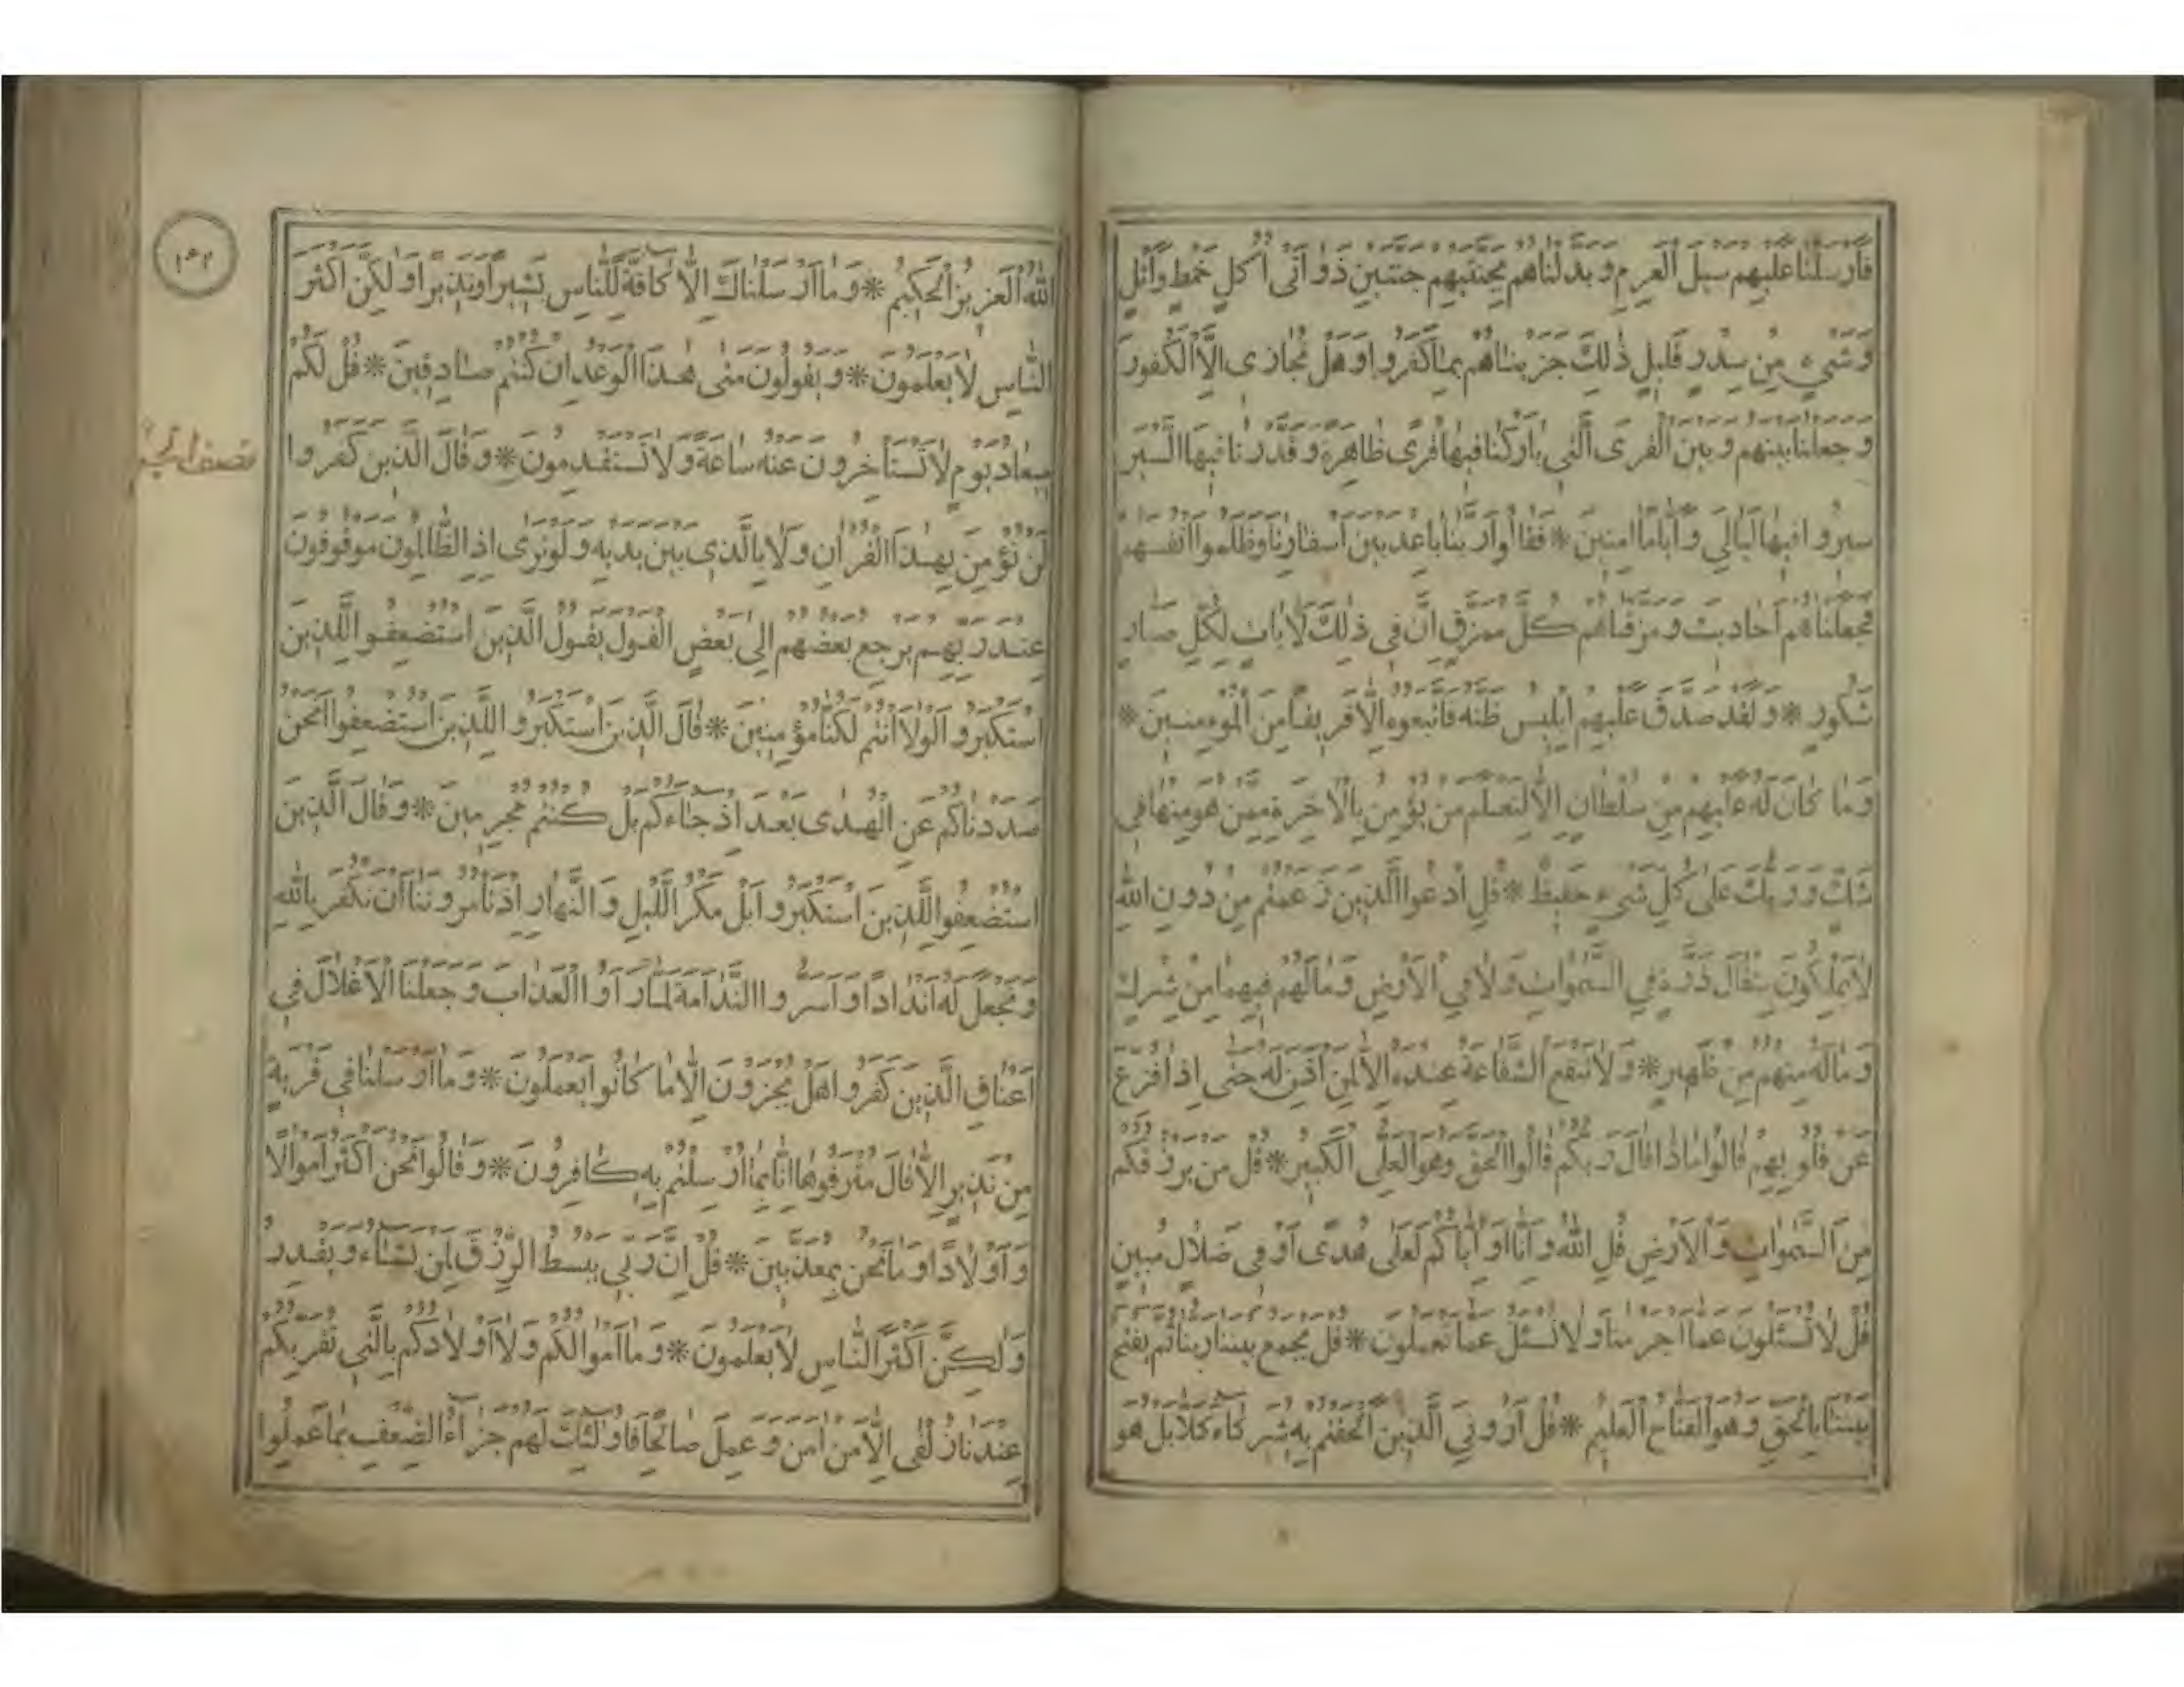 فَأَرْسَلْنَا عَلَيْهِمْ سَيْلَ الْعَرِمِ وَبَدَّلْنَاهُمْ بِجَنَّتَيْهِمْ جَنَّتَيْنِ ذَوَاتَىْ أُكُلٍ خَمْطٍ وَأَثْلٍ
وَشَىْءٍ مِنْ سِدْرٍ قَلِيلٍ ذَلِكَ جَزَيْنَاهُمْ بِمَا كَفَرُوا وَهَلْ نُجَازِى إِلَّا الْكَفُورَ
وَجَعَلْنَا بَيْنَهُمْ وَبَيْنَ الْقُرَى الَّتِى بَارَكْنَا فِيهَا قُرًى ظَاهِرَةً وَقَدَّرْنَا فِيهَا السَّيْرَ
سِيرُوا فِيهَا لَيَالِىَ وَأَيَّامًا اٰمِنِينَ * فَقَالُوا رَبَّنَا بَاعِدْ بَيْنَ أَسْفَارِنَا وَظَلَمُوا أَنْفُسَهُمْ
فَجَعَلْنَاهُمْ أَحَادِيثَ وَمَزَّقْنَاهُمْ كُلَّ مُمَزَّقٍ إِنَّ فِى ذَلِكَ لَاٰيَاتٍ لِكُلِّ صَبَّارٍ
شَكُورٍ * وَلَقَدْ صَدَّقَ عَلَيْهِمْ إِبْلِيسُ ظَنَّهُ فَاتَّبَعُوهُ إِلَّا فَرِيقًا مِنَ الْمُؤْمِنِينَ *
وَمَا كَانَ لَهُ عَلَيْهِمْ مِنْ سُلْطَانٍ إِلَّا لِنَعْلَمَ مَنْ يُؤْمِنُ بِالْاٰخِرَةِ مِمَّنْ هُوَ مِنْهَا فِى
شَكٍّ وَرَبُّكَ عَلَى كُلِّ شَىْءٍ حَفِيظٌ * قُلِ ادْعُوا الَّذِينَ زَعَمْتُمْ مِنْ دُونِ اللّٰهِ
لَا يَمْلِكُونَ مِثْقَالَ ذَرَّةٍ فِى السَّمٰوَاتِ وَلَا فِى الْأَرْضِ وَمَا لَهُمْ فِيهِمَا مِنْ شِرْكٍ
وَمَا لَهُ مِنْهُمْ مِنْ ظَهِيرٍ * وَلَا تَنْفَعُ الشَّفَاعَةُ عِنْدَهُ إِلَّا لِمَنْ أَذِنَ لَهُ حَتَّى إِذَا فُزِّعَ
عَنْ قُلُوبِهِمْ قَالُوا مَاذَا قَالَ رَبُّكُمْ قَالُوا الْحَقَّ وَهُوَ الْعَلِىُّ الْكَبِيرُ * قُلْ مَنْ يَرْزُقُكُمْ
مِنَ السَّمٰوَاتِ وَالْأَرْضِ قُلِ اللّٰهُ وَإِنَّا أَوْ إِيَّاكُمْ لَعَلَى هُدًى أَوْ فِى ضَلَالٍ مُبِينٍ
قُلْ لَا تُسْئَلُونَ عَمَّا أَجْرَمْنَا وَلَا نُسْئَلُ عَمَّا تَعْمَلُونَ * قُلْ يَجْمَعُ بَيْنَنَا رَبُّنَا ثُمَّ يَفْتَحُ
بَيْنَنَا بِالْحَقِّ وَهُوَ الْفَتَّاحُ الْعَلِيمُ * قُلْ أَرُونِىَ الَّذِينَ أَلْحَقْتُمْ بِهِ شُرَكَاءَ كَلَّا بَلْ هُوَ
١٠٢
اللّٰهُ الْعَزِيزُ الْحَكِيمُ * وَمَا أَرْسَلْنَاكَ إِلَّا كَافَّةً لِلنَّاسِ بَشِيرًا وَنَذِيرًا وَلَكِنَّ أَكْثَرَ
النَّاسِ لَا يَعْلَمُونَ * وَيَقُولُونَ مَتَى هٰذَا الْوَعْدُ إِنْ كُنْتُمْ صَادِقِينَ * قُلْ لَكُمْ
مِيعَادُ يَوْمٍ لَا تَسْتَأْخِرُونَ عَنْهُ سَاعَةً وَلَا تَسْتَقْدِمُونَ * وَقَالَ الَّذِينَ كَفَرُوا
لَنْ نُؤْمِنَ بِهٰذَا الْقُرْاٰنِ وَلَا بِالَّذِى بَيْنَ يَدَيْهِ وَلَوْ تَرَى إِذِ الظَّالِمُونَ مَوْقُوفُونَ
عِنْدَ رَبِّهِمْ يَرْجِعُ بَعْضُهُمْ إِلَى بَعْضٍ الْقَوْلَ يَقُولُ الَّذِينَ اسْتُضْعِفُوا لِلَّذِينَ
اسْتَكْبَرُوا لَوْلَا أَنْتُمْ لَكُنَّا مُؤْمِنِينَ * قَالَ الَّذِينَ اسْتَكْبَرُوا لِلَّذِينَ اسْتُضْعِفُوا أَنَحْنُ
صَدَدْنَاكُمْ عَنِ الْهُدَى بَعْدَ إِذْ جَاءَكُمْ بَلْ كُنْتُمْ مُجْرِمِينَ * وَقَالَ الَّذِينَ
اسْتُضْعِفُوا لِلَّذِينَ اسْتَكْبَرُوا بَلْ مَكْرُ اللَّيْلِ وَالنَّهَارِ إِذْ تَأْمُرُونَنَا أَنْ نَكْفُرَ بِاللّٰهِ
وَنَجْعَلَ لَهُ أَنْدَادًا وَأَسَرُّوا النَّدَامَةَ لَمَّا رَأَوُا الْعَذَابَ وَجَعَلْنَا الْأَغْلَالَ فِى
أَعْنَاقِ الَّذِينَ كَفَرُوا هَلْ يُجْزَوْنَ إِلَّا مَا كَانُوا يَعْمَلُونَ * وَمَا أَرْسَلْنَا فِى قَرْيَةٍ
مِنْ نَذِيرٍ إِلَّا قَالَ مُتْرَفُوهَا إِنَّا بِمَا أُرْسِلْتُمْ بِهِ كَافِرُونَ * وَقَالُوا نَحْنُ أَكْثَرُ أَمْوَالًا
وَأَوْلَادًا وَمَا نَحْنُ بِمُعَذَّبِينَ * قُلْ إِنَّ رَبِّى يَبْسُطُ الرِّزْقَ لِمَنْ يَشَاءُ وَيَقْدِرُ
وَلَكِنَّ أَكْثَرَ النَّاسِ لَا يَعْلَمُونَ * وَمَا أَمْوَالُكُمْ وَلَا أَوْلَادُكُمْ بِالَّتِى تُقَرِّبُكُمْ
عِنْدَنَا زُلْفَى إِلَّا مَنْ اٰمَنَ وَعَمِلَ صَالِحًا فَأُولٰئِكَ لَهُمْ جَزَاءُ الضِّعْفِ بِمَا عَمِلُوا